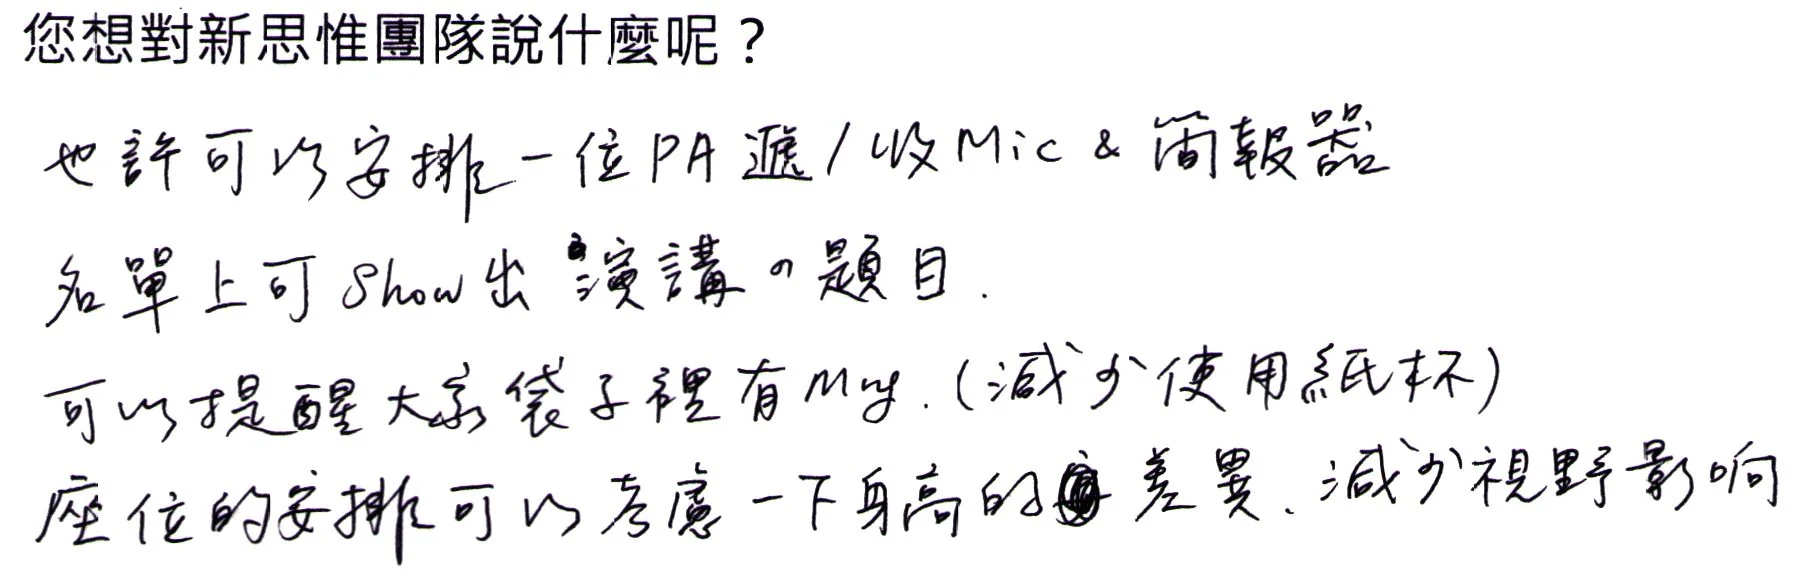 您想對新思惟團隊說什麼呢？
也許可以安排一位PA遞/收Mic & 简報器
名單上可Show出 演講の題目.
可以提醒大家袋子裡有Mug.(減少使用紙杯)
座位的安排可以考慮一下身高的差異、減少視野影响